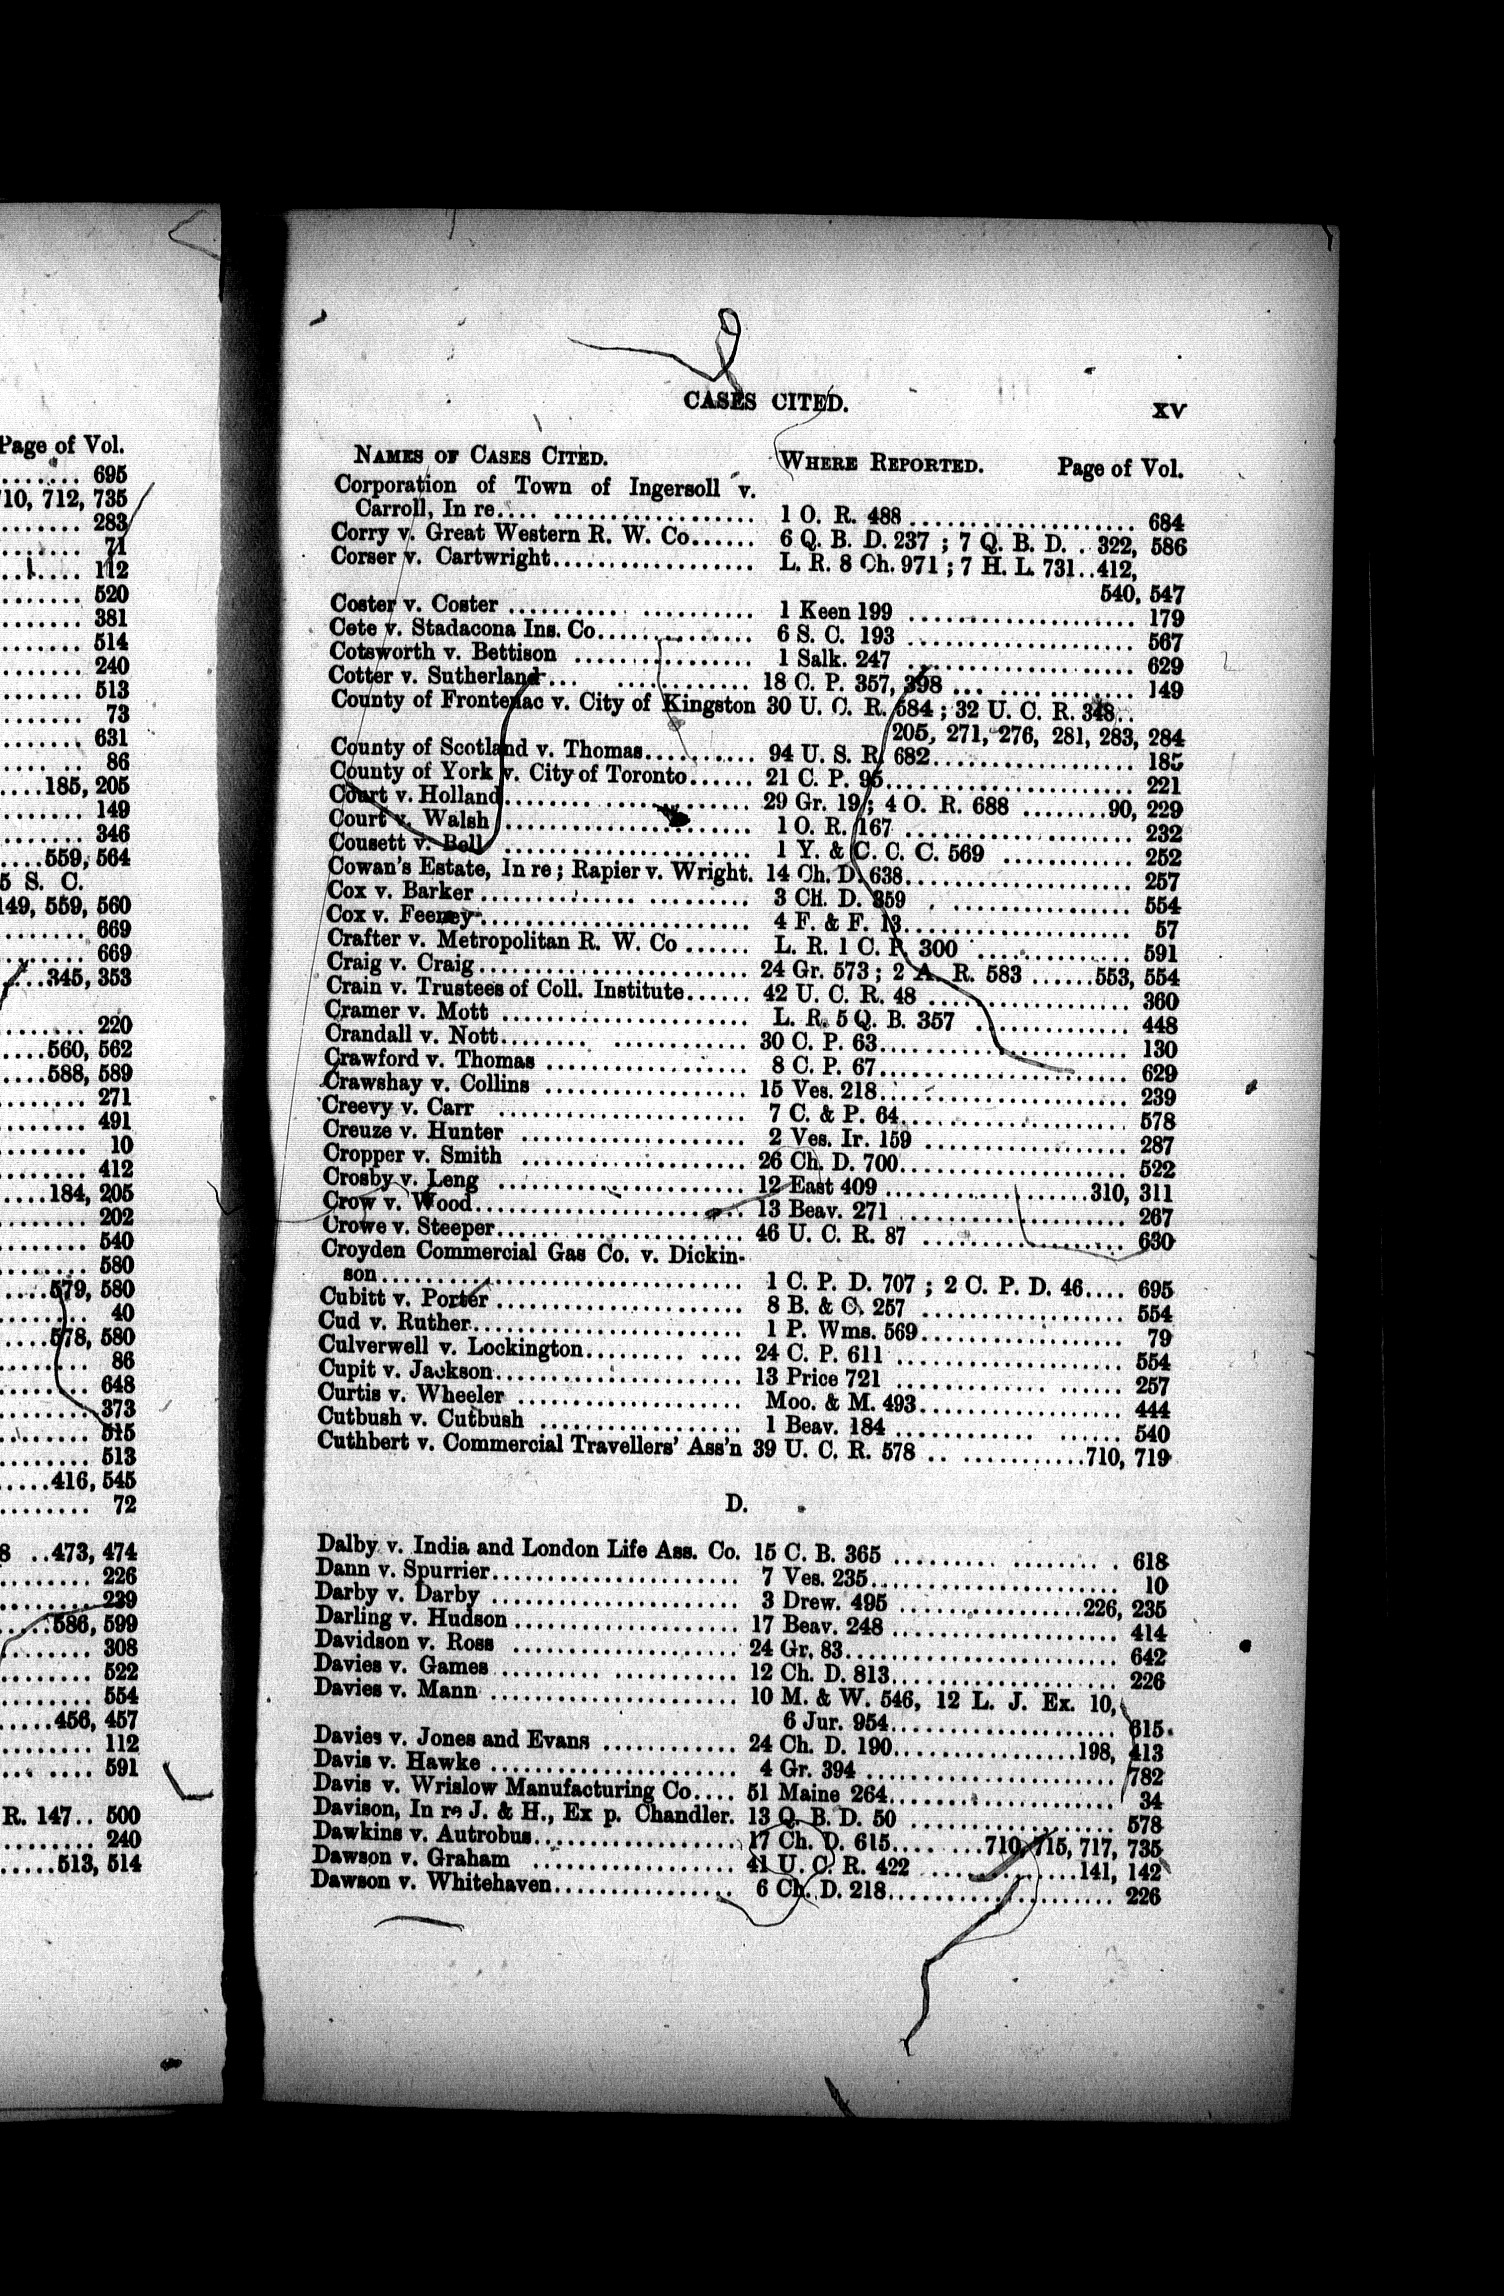 Page of Vol.
........ 695
710, 712, 735
........ 283
........ 71
........ 112
........ 520
........ 381
........ 514
........ 240
........ 513
........ 73
........ 631
........ 86
....185, 205
........ 149
........ 346
....559, 564
5 S. C.
149, 559, 560
........ 669
........ 669
....345, 353
........ 220
....560, 562
....588, 589
........ 271
........ 491
........ 10
........ 412
....184, 205
........ 202
........ 540
........ 580
....579, 580
........ 40
....578, 580
........ 86
........ 648
........ 373
........ 515
........ 513
....416, 545
........ 72
8 ..473, 474
........ 226
........ 239
....586, 599
........ 308
........ 522
........ 554
....456, 457
........ 112
........ 591
R. 147.. 500
........ 240
.....513, 514
CASES CITED. XV
NAMES OF CASES CITED. WHERE REPORTED. Page of Vol.
Corporation of Town of Ingersoll v.
Carroll, In re.... .................. 1 O. R. 488 .................... 684
Corry v. Great Western R. W. Co...... 6 Q. B. D. 237 ; 7 Q. B. D. . 322, 586
Corser v. Cartwright.................. L. R. 8 Ch. 971 ; 7 H. L. 731..412,
540, 547
Coster v. Coster .......... .......... 1 Keen 199 .................... 179
Cete v. Stadacona Ins. Co.............. 6 S. C. 193 .................... 567
Cotsworth v. Bettison ................ 1 Salk. 247 .................... 629
Cotter v. Sutherland... ............ 18 C. P. 357, 398 ... ............ 149
County of Frontenac v. City of Kingston 30 U. C. R. 584 ; 32 U. C. R. 348..
205, 271, 276, 281, 283, 284
County of Scotland v. Thomas.......... 94 U. S. R. 682.................. 185
County of York v. City of Toronto...... 21 C. P. 95...................... 221
Court v. Holland...................... 29 Gr. 19 ; 4 O. R. 688 ........90, 229
Court v. Walsh ...................... 1 O. R. 167 .................... 232
Cousett v. Bell ...................... 1 Y. & C. C. C. 569 ............ 252
Cowan's Estate, In re ; Rapier v. Wright. 14 Ch. D. 638.................... 257
Cox v. Barker ........................ 3 Ch. D. 359 .................. 554
Cox v. Feeney........................ 4 F. & F. 13.................... 57
Crafter v. Metropolitan R. W. Co ...... L. R. 1 C. P. 300 .............. 591
Craig v. Craig........................ 24 Gr. 573 ; 2 A. R. 583 ......553, 554
Crain v. Trustees of Coll. Institute...... 42 U. C. R. 48 .................. 360
Cramer v. Mott ...................... L. R. 5 Q. B. 357 .............. 448
Crandall v. Nott........ ............ 30 C. P. 63...................... 130
Crawford v. Thomas .................. 8 C. P. 67...................... 629
Crawshay v. Collins .................. 15 Ves. 218...................... 239
Creevy v. Carr ...................... 7 C. & P. 64.................... 578
Creuze v. Hunter .................... 2 Ves. Ir. 159 .................. 287
Cropper v. Smith .................... 26 Ch. D. 700.................... 522
Crosby v. Leng ...................... 12 East 409 ..................310, 311
Crow v. Wood........................ 13 Beav. 271 .................... 267
Crowe v. Steeper...................... 46 U. C. R. 87 .................. 630
Croyden Commercial Gas Co. v. Dickin-
son................................ 1 C. P. D. 707 ; 2 C. P. D. 46.... 695
Cubitt v. Porter ...................... 8 B. & C. 257 .................. 554
Cud v. Ruther........................ 1 P. Wms. 569.................. 79
Culverwell v. Lockington......... .... 24 C. P. 611 .................... 554
Cupit v. Jackson...................... 13 Price 721 ............ ...... 257
Curtis v. Wheeler .................... Moo. & M. 493.................. 444
Cutbush v. Cutbush .................. 1 Beav. 184 ............ ...... 540
Cuthbert v. Commercial Travellers' Ass'n 39 U. C. R. 578 .. ...........710, 719
D.
Dalby v. India and London Life Ass. Co. 15 C. B. 365 ......... ......... . 618
Dann v. Spurrier...................... 7 Ves. 235...................... 10
Darby v. Darby ...................... 3 Drew. 495 ................226, 235
Darling v. Hudson.................... 17 Beav. 248 .................... 414
Davidson v. Ross .................... 24 Gr. 83........................ 642
Davies v. Games ......... ........... 12 Ch. D. 813.................... 226
Davies v. Mann ...................... 10 M. & W. 546, 12 L. J. Ex. 10,
6 Jur. 954.................... 615
Davies v. Jones and Evans ............ 24 Ch. D. 190................198, 413
Davis v. Hawke ...................... 4 Gr. 394 ...................... 782
Davis v. Wrislow Manufacturing Co.... 51 Maine 264.................... 34
Davison, In re J. & H., Ex p. Chandler. 13 Q. B. D. 50 .................. 578
Dawkins v. Autrobus.................. 17 Ch. D. 615........710, 715, 717, 735
Dawson v. Graham .................. 41 U. C. R. 422 ..............141, 142
Dawson v. Whitehaven................ 6 Ch. D. 218.................... 226